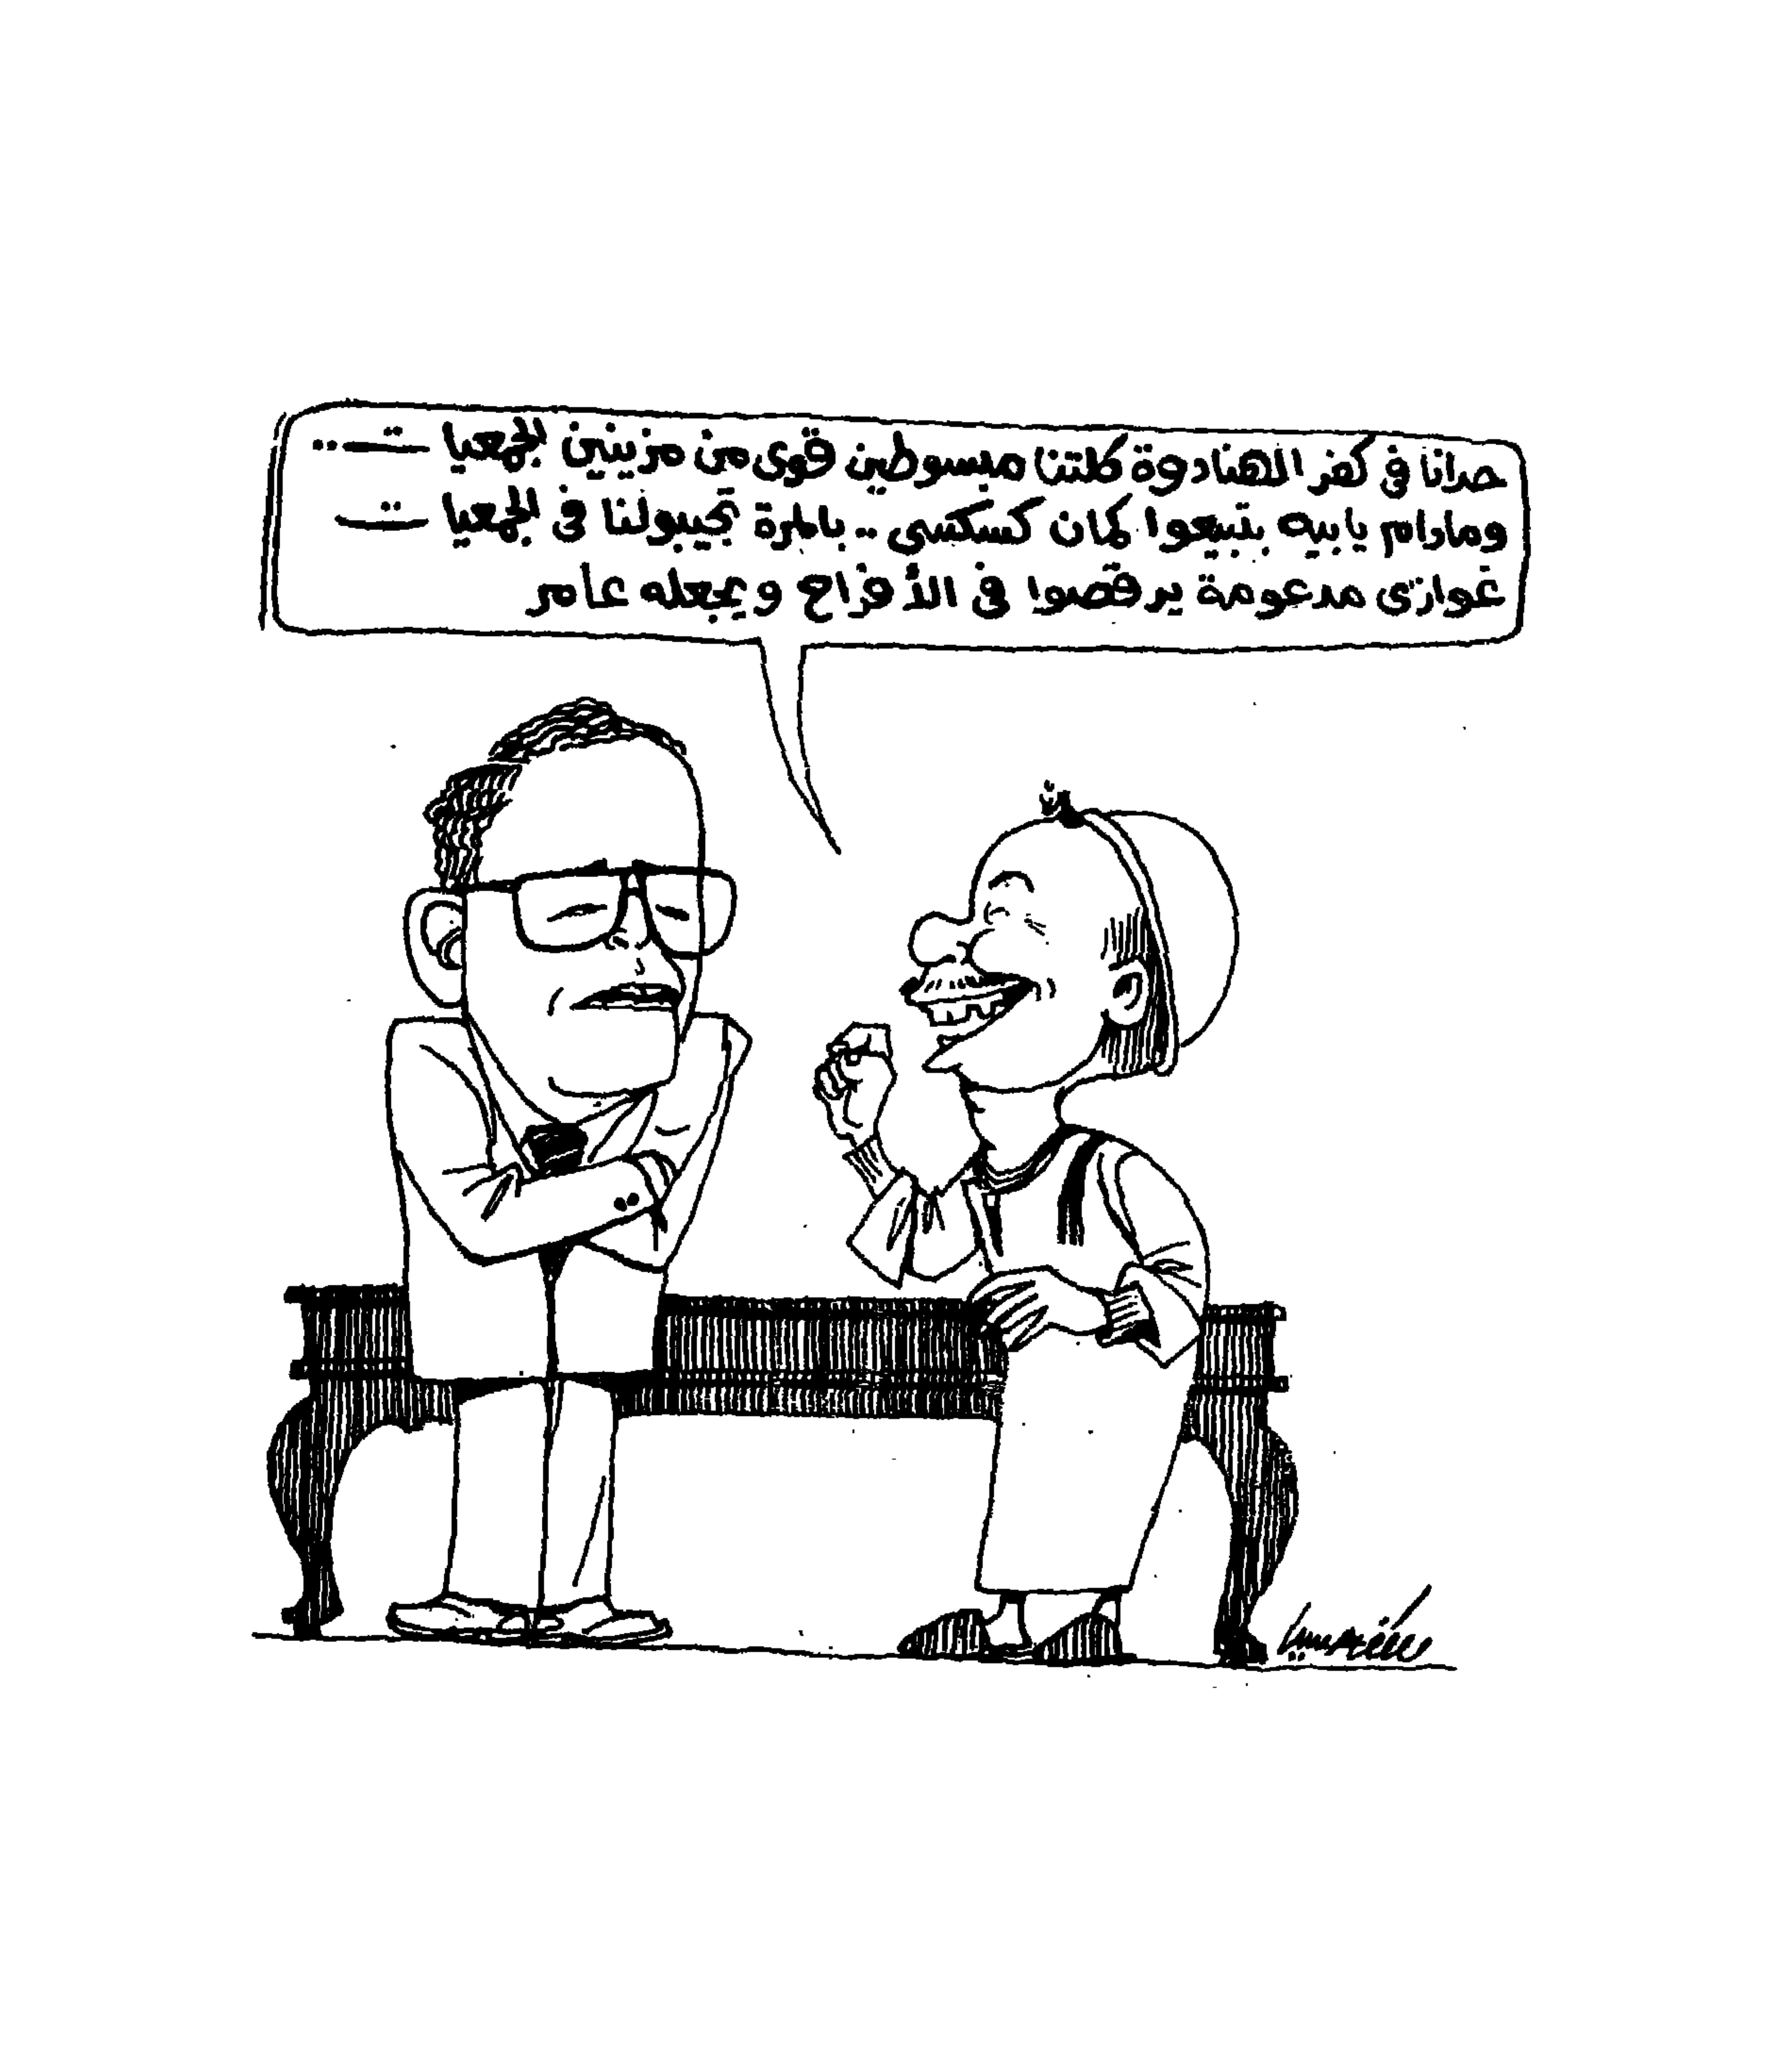 حدانا فى كفر الهنادوة كلتنا مبسوطين قوى من مزينين الجمعيات ..
ومادام يابيه بتبيعوا كمان كسكسى .. بالمرة تجيبولنا فى الجمعيات
غوازى مدعومة يرقصوا فى الأفراح ويجعله عامر